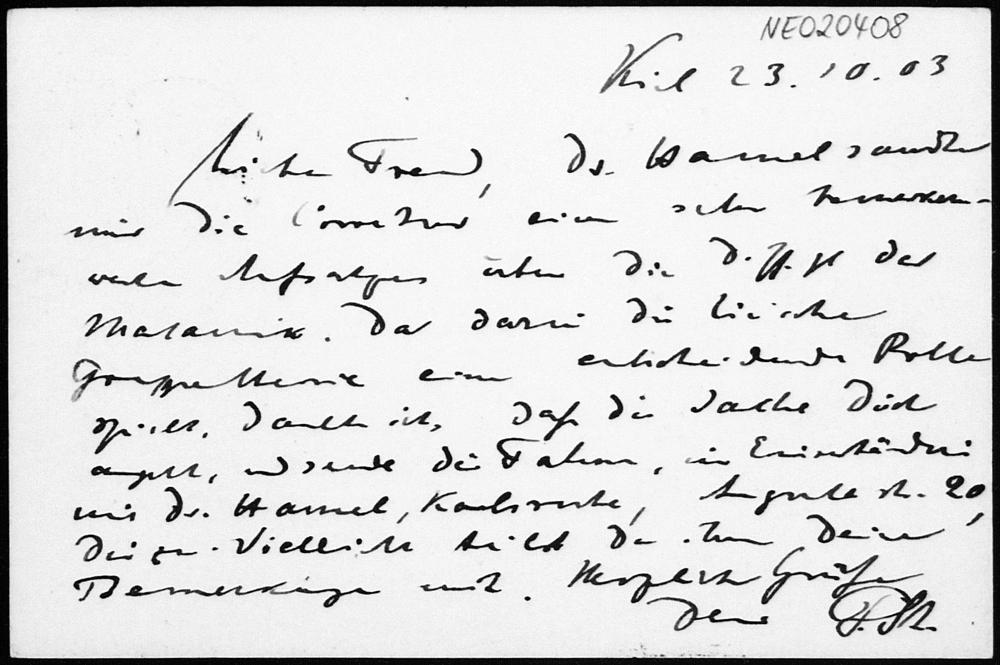 NE020408
Kiel 23.10.03
Lieber Freund, Dr. Hamel sandte
mir die Correktur eines sehr bemerkens-
werten Aufsatzes über die D. ffgl der
Mechanik. Da darin die Lie'sche
Gruppentheorie eine entscheidende Rolle
spielt, dachte ich, daß die Sache Dich
angeht, und sende die Fahnen, im Einverständnis
mit Dr. Hamel, Karlsruhe, Augustastr. 20,
Dir zu. Vielleicht teilst Du ihm Deine
Bemerkungen mit. Herzliche Grüße
Dein P. St.